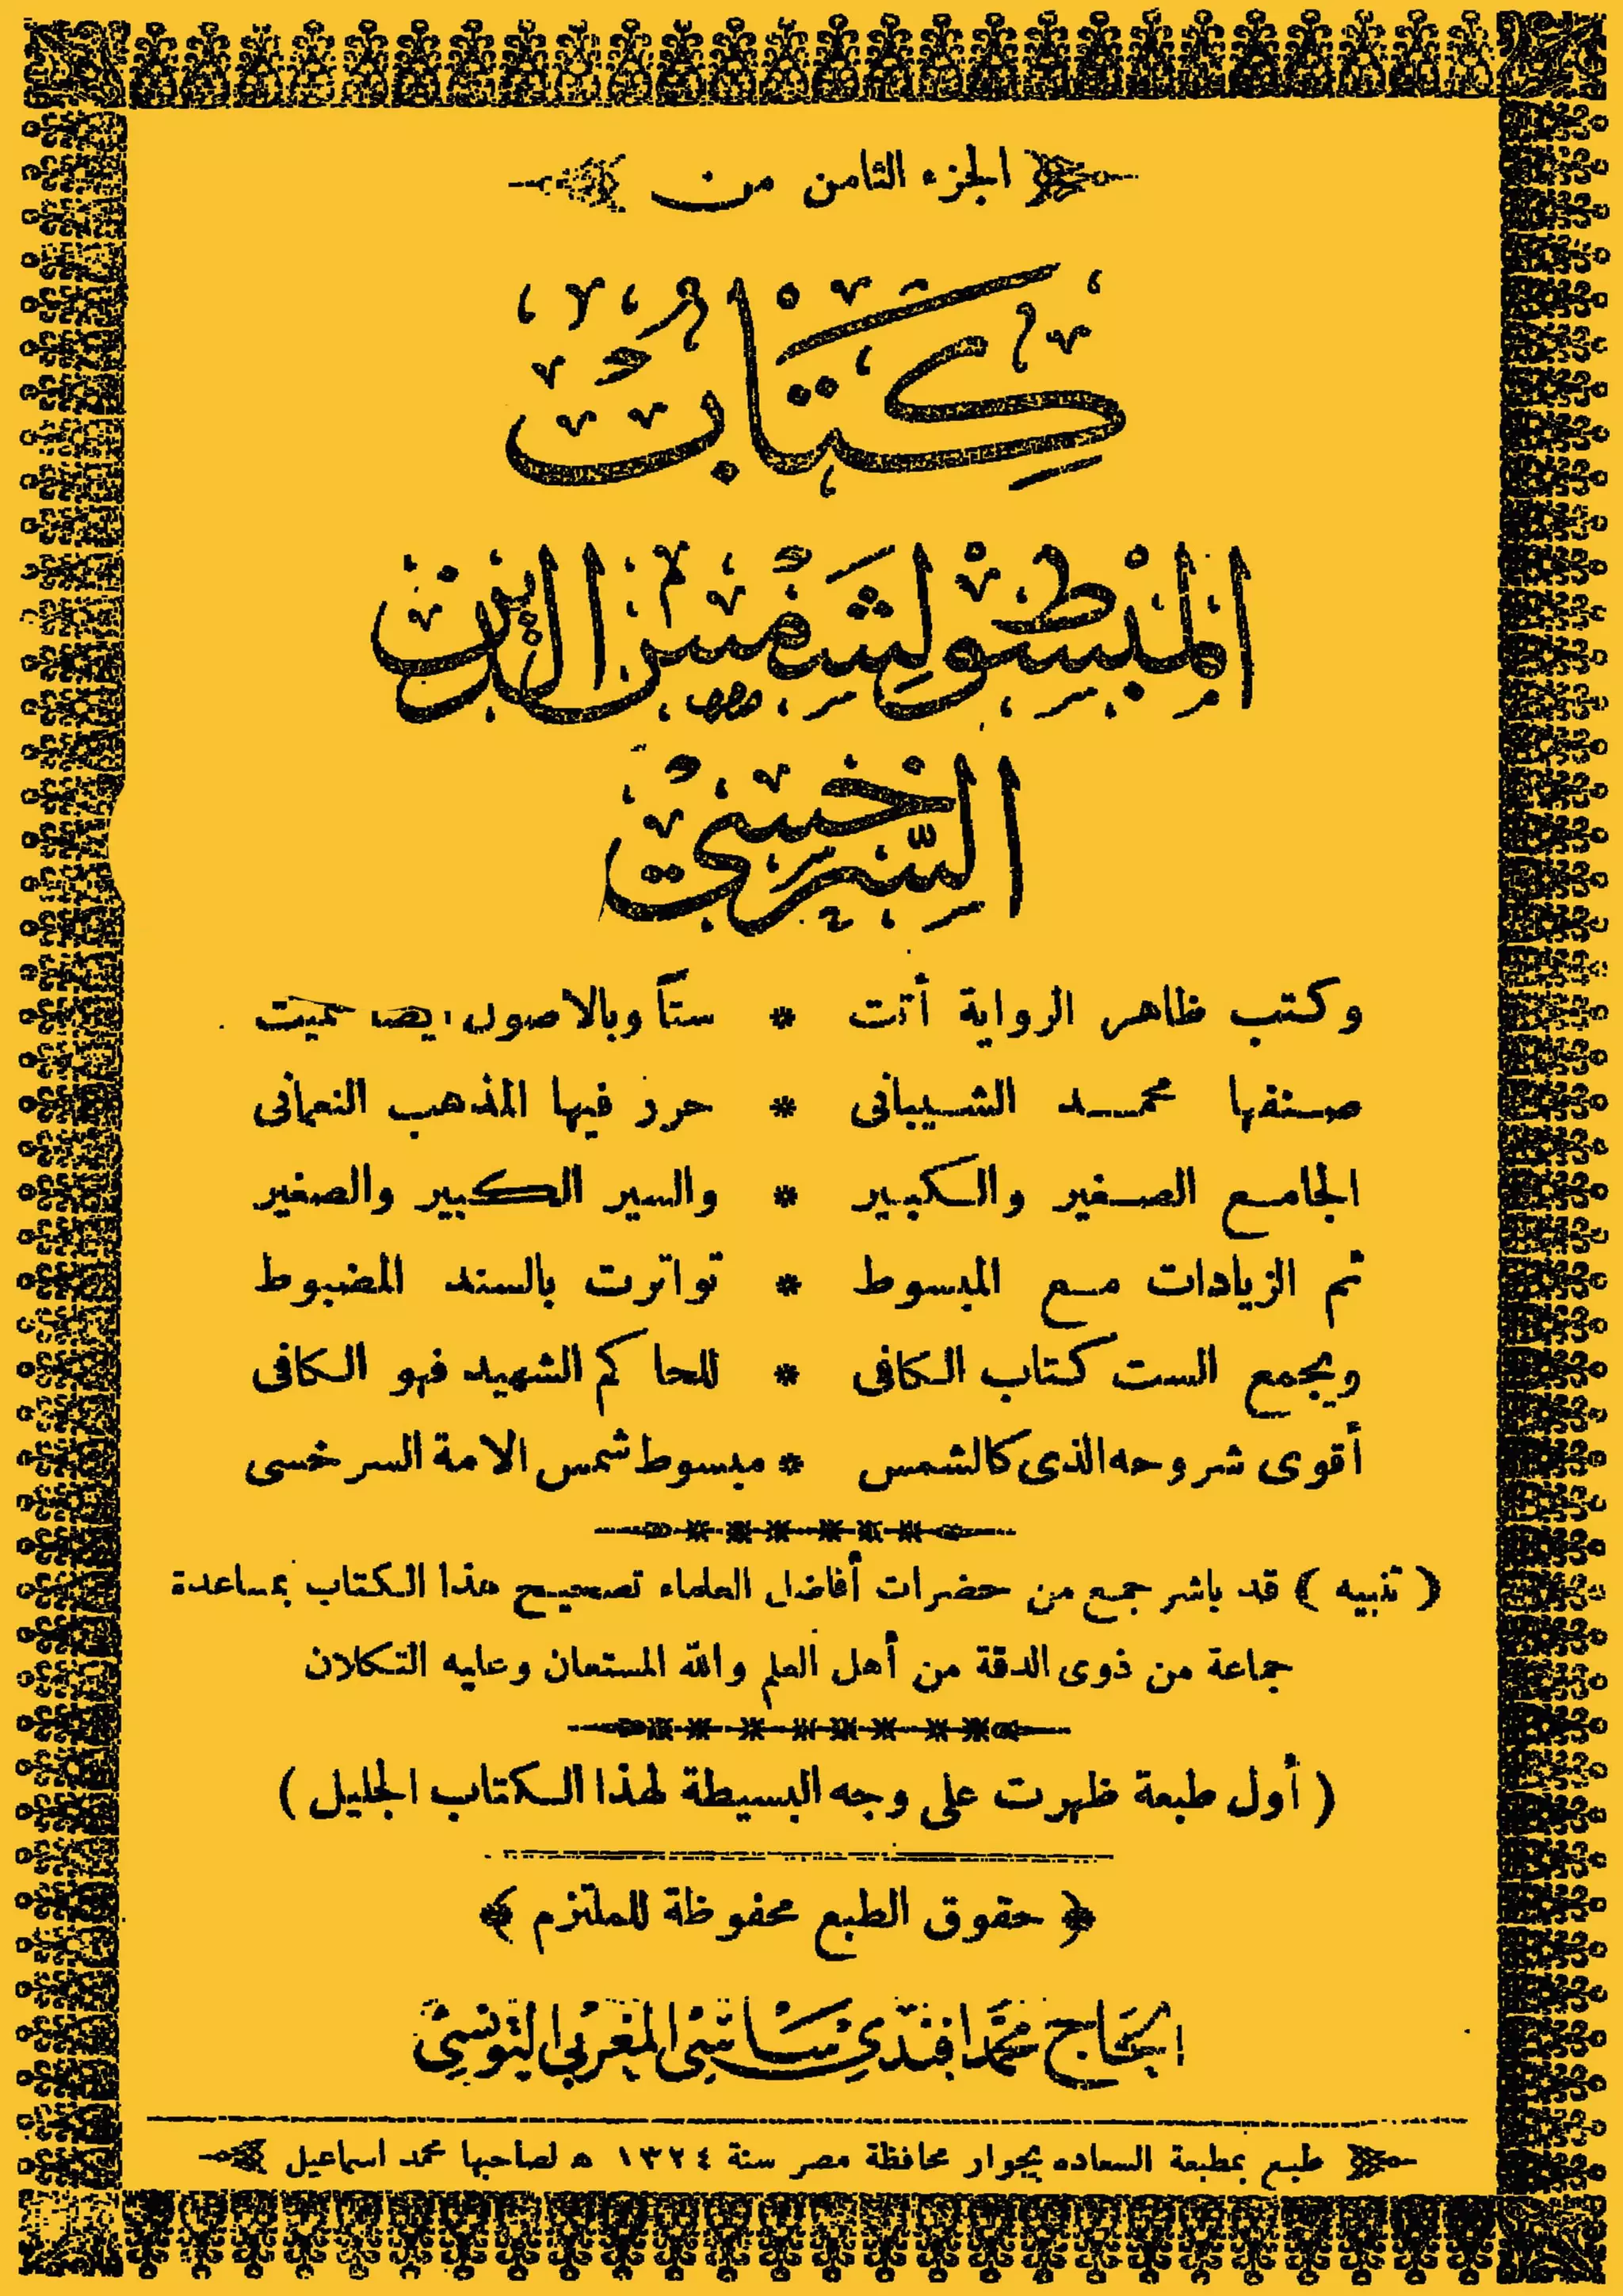 الجزء الثامن من
كتاب
المبسوط لشمس الدين
السرخسي
وكتب ظاهر الرواية أتت * ستاً وبالاصول ايضا سميت
صنفها محمد الشيبانى * حرر فيها المذهب النعمانى
الجامع الصغير والكبير * والسير الكبير والصغير
ثم الزيادات مع المبسوط * تواترت بالسند المضبوط
ويجمع الست كتاب الكافى * للحاكم الشهيد فهو الكافى
أقوى شروحه الذى كالشمس * مبسوط شمس الامة السرخسى
( تنبيه ) قد باشر جمع من حضرات أفاضل العلماء تصحيح هذا الكتاب بمساعدة
جماعة من ذوى الدقة من أهل العلم والله المستعان وعليه التكلان
( أول طبعة ظهرت على وجه البسيطة لهذا الكتاب الجليل )
﴿ حقوق الطبع محفوظة للملتزم ﴾
الحاج محمد افندي ساسي المغربي التونسي
طبع بمطبعة السعاده بجوار محافظة مصر سنة ١٣٢٤ ه لصاحبها محمد اسماعيل